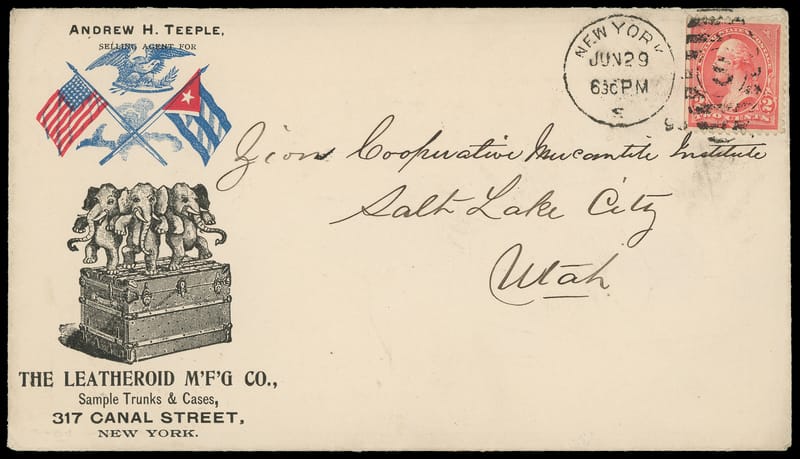 ANDREW H. TEEPLE,
SELLING AGENT FOR
THE LEATHEROID M'F'G CO.,
Sample Trunks & Cases,
317 CANAL STREET,
NEW YORK.
NEW YORK
JUN 29
630 PM
98
TWO CENTS
2
Zion Cooperative Mercantile Institute
Salt Lake City
Utah